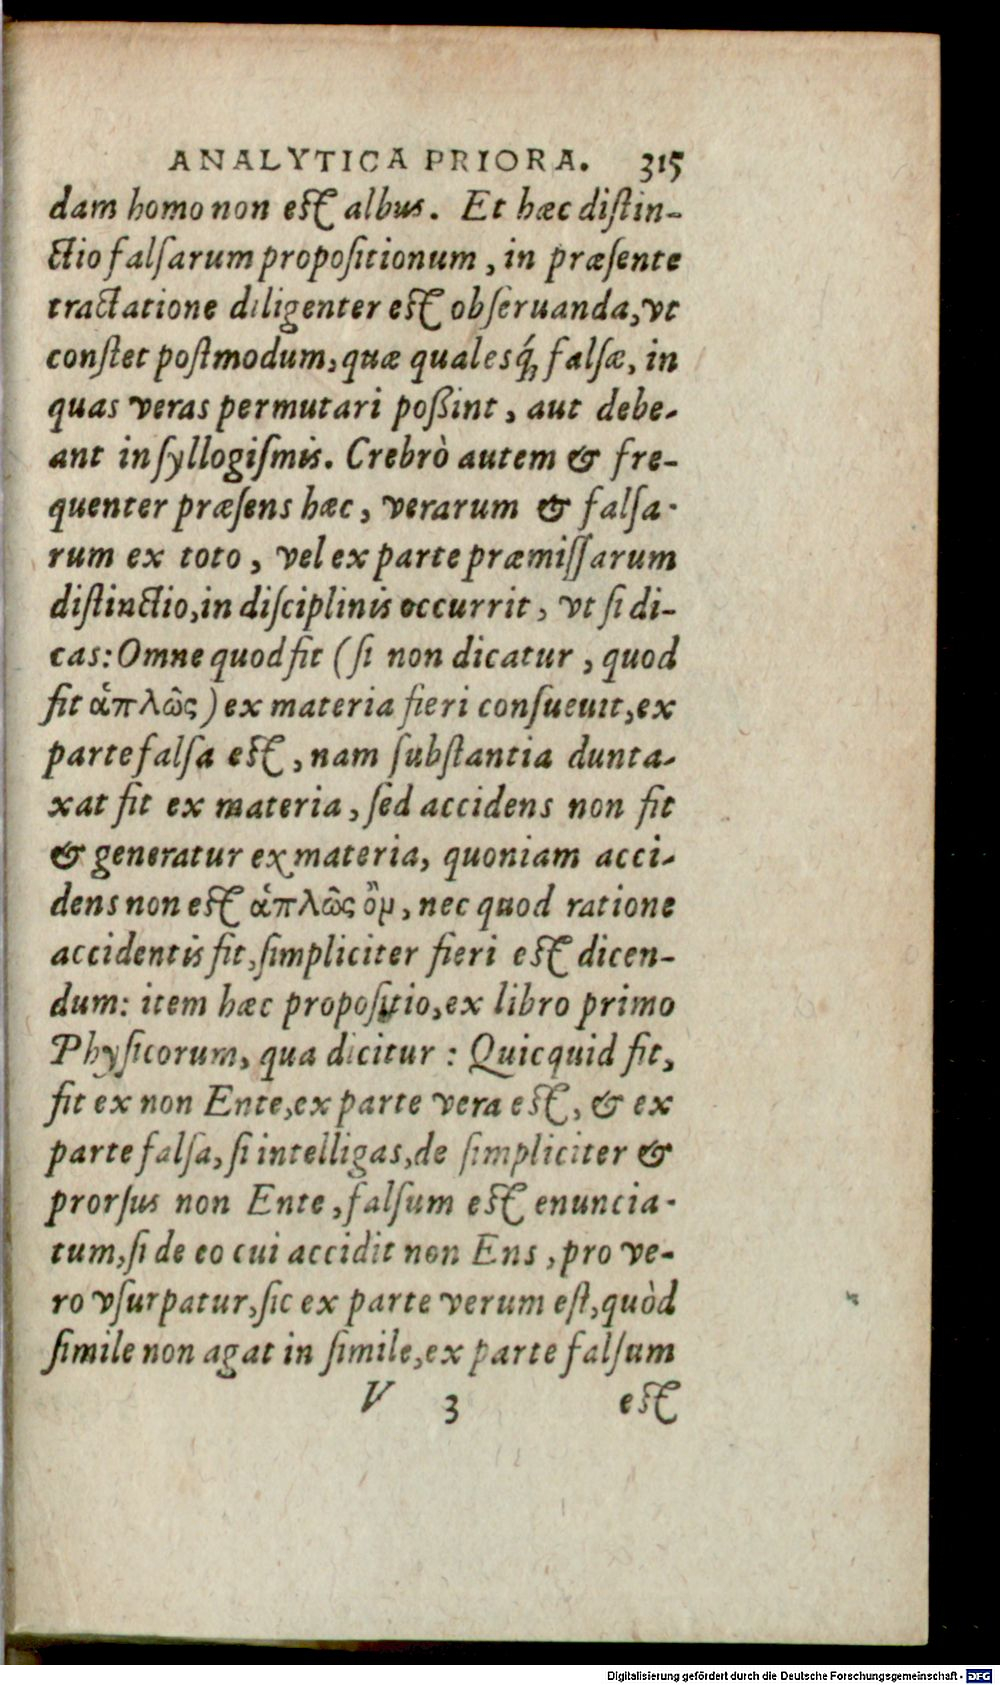 ANALYTICA PRIORA. 315
dam homo non est albus. Et hæc distin-
ctio falsarum propositionum, in præsente
tractatione diligenter est obseruanda, vt
constet postmodum, quæ qualesq́; falsæ, in
quas veras permutari poßint, aut debe-
ant in syllogismis. Crebrò autem & fre-
quenter præsens hæc, verarum & falsa-
rum ex toto, vel ex parte præmissarum
distinctio, in disciplinis occurrit, vt si di-
cas: Omne quod fit (si non dicatur, quod
fit ἁπλῶς) ex materia fieri consueuit, ex
parte falsa est, nam substantia dunta-
xat fit ex materia, sed accidens non fit
& generatur ex materia, quoniam acci-
dens non est ἁπλῶς ὂν, nec quod ratione
accidentis fit, simpliciter fieri est dicen-
dum: item hæc propositio, ex libro primo
Physicorum, qua dicitur: Quicquid fit,
fit ex non Ente, ex parte vera est, & ex
parte falsa, si intelligas, de simpliciter &
prorsus non Ente, falsum est enuncia-
tum, si de eo cui accidit non Ens, pro ve-
ro vsurpatur, sic ex parte verum est, quòd
simile non agat in simile, ex parte falsum
V 3 est
Digitalisierung gefördert durch die Deutsche Forschungsgemeinschaft - DFG